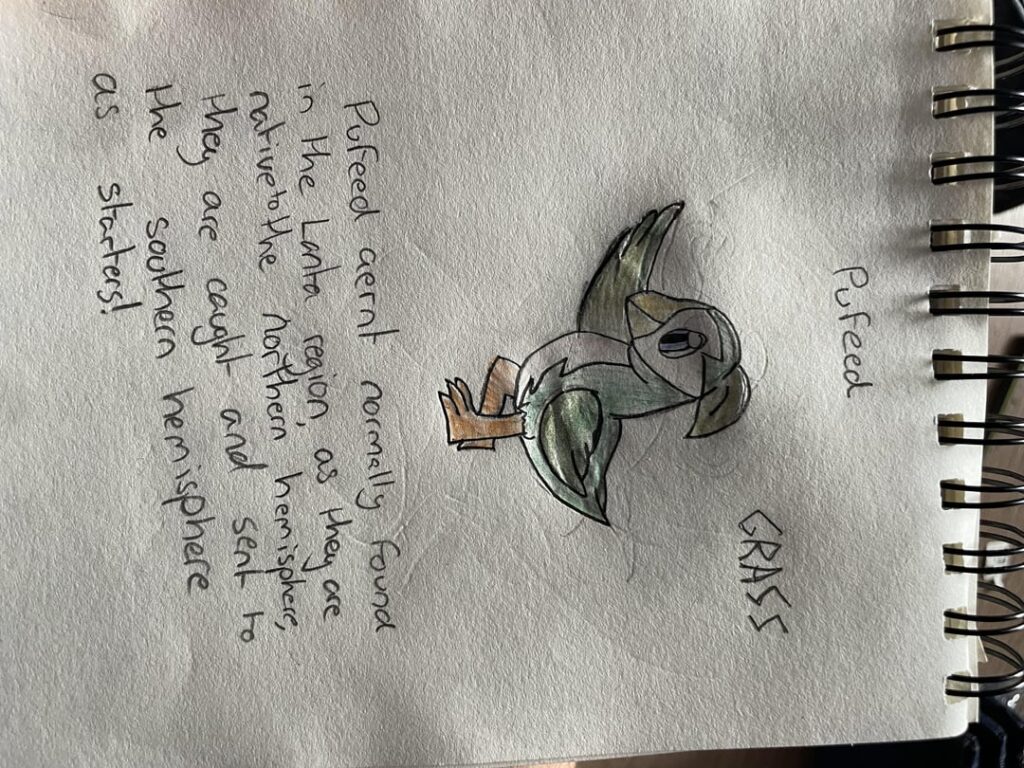 Pufeed
GRASS
Pufeed aernt normally found
in the Lanta region, as they are
native to the northern hemisphere,
they are caught and sent to
the southern hemisphere
as starters!